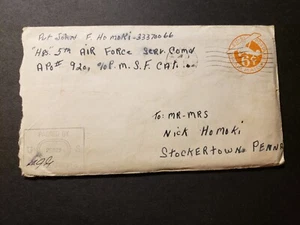 Pvt John F. Homoki-33370066
Hqs. 5th AIR FORCE SERV. COMD
APO# 920, % P.M. S.F. CAL.
6¢
TO: MR-MRS
NICK HOMOKI
STOCKERTOWN PENNA